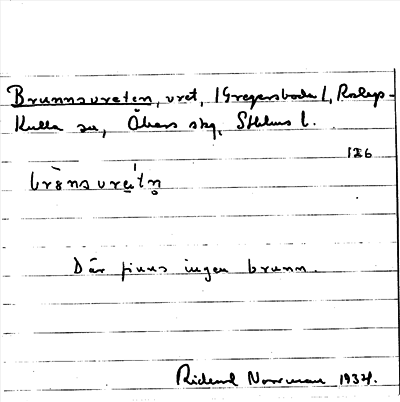 Brunnsvreten, vret, /Gregersboda/, Roslags-
Kulla sn, Åkers skg, Sthlms l.
IX6
brø̀nsvre̱ítn̥
Där finns ingen brunn.
Rickard Norrman 1934.